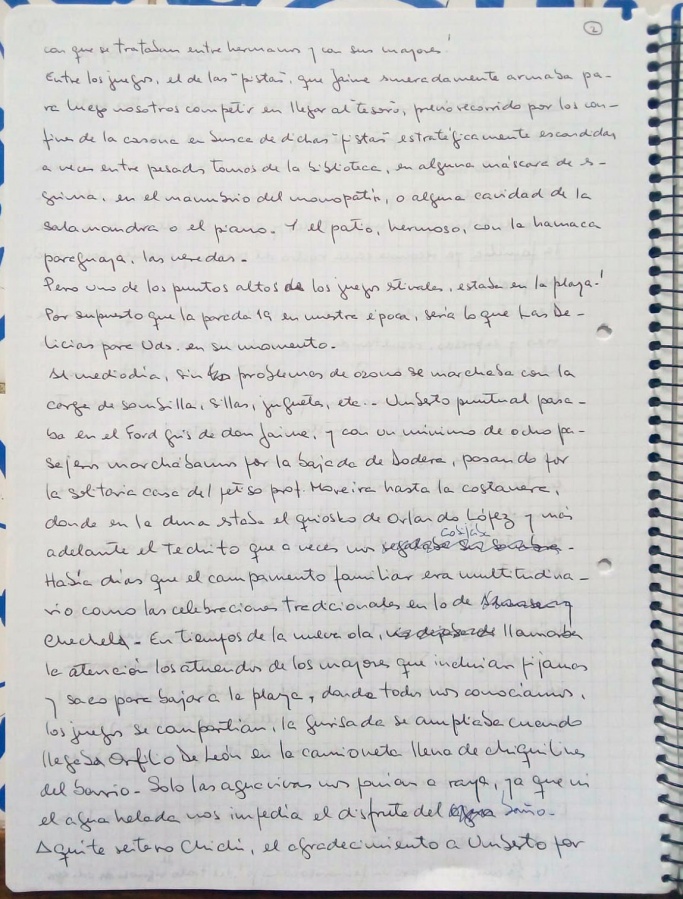 2
con que se trataban entre hermanos y con sus mayores!
Entre los juegos, el de las "pistas", que Jaime smeradamente armaba pa-
ra luego nosotros competir en llegar al tesoro, previo recorrido por los con-
fines de la casona en busca de dichas "pistas" estratégicamente escondidas
a veces entre pesados tomos de la biblioteca, en alguna máscara de es-
grima, en el manubrio del monopatín, o alguna cavidad de la
salamandra o el piano. Y el patio, hermoso, con la hamaca
paraguaya, las veredas.
Pero uno de los puntos altos de los juegos stivales, estaba en la playa!
Por supuesto que la parada 19 en nuestra época, sería lo que Las De-
licias para Uds. en su momento.
Al mediodía, sin problemas de ozono se marchaba con la
carga de sombrilla, sillas, juguetes, etc.. Umberto puntual pasa-
ba en el Ford gris de don Jaime, y con un mínimo de ocho pa-
sajeros marchábamos por la bajada de Dodera, pasando por
la solitaria casa del petiso prof. Moreira hasta la costanera,
donde en la duna estaba el quiosko de Orlando López y más
adelante el techito que a veces nos cobijaba.
Había días que el campamento familiar era multitudina-
rio como las celebraciones tradicionales en lo de
Chechela. En tiempos de la nueva ola, llamaba
la atención los atuendos de los mayores que incluían pijamas
y saco para bajar a la playa, donde todos nos conocíamos,
los juegos se compartían, la gurisada se ampliaba cuando
llegaba Orfilo De León en la camioneta llena de chiquilines
del barrio. Solo las aguavivas nos ponían a raya, ya que ni
el agua helada nos impedía el disfrute del baño.
Aquí te reitero Chichí, el agradecimiento a Umberto por